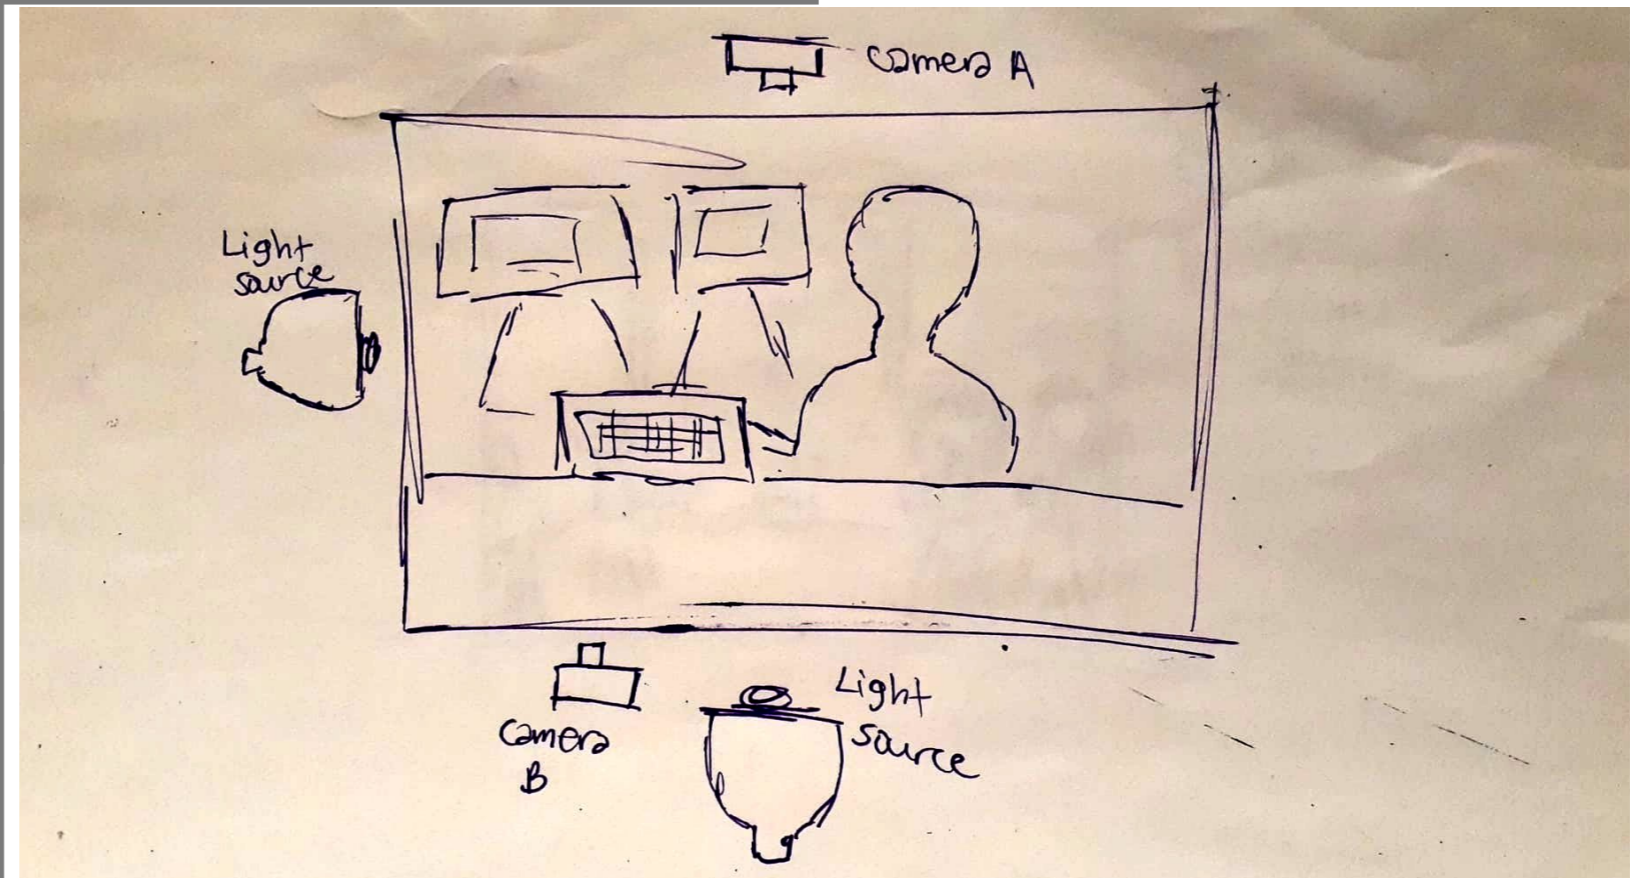 camera A
Light
source
camera
B
Light
source